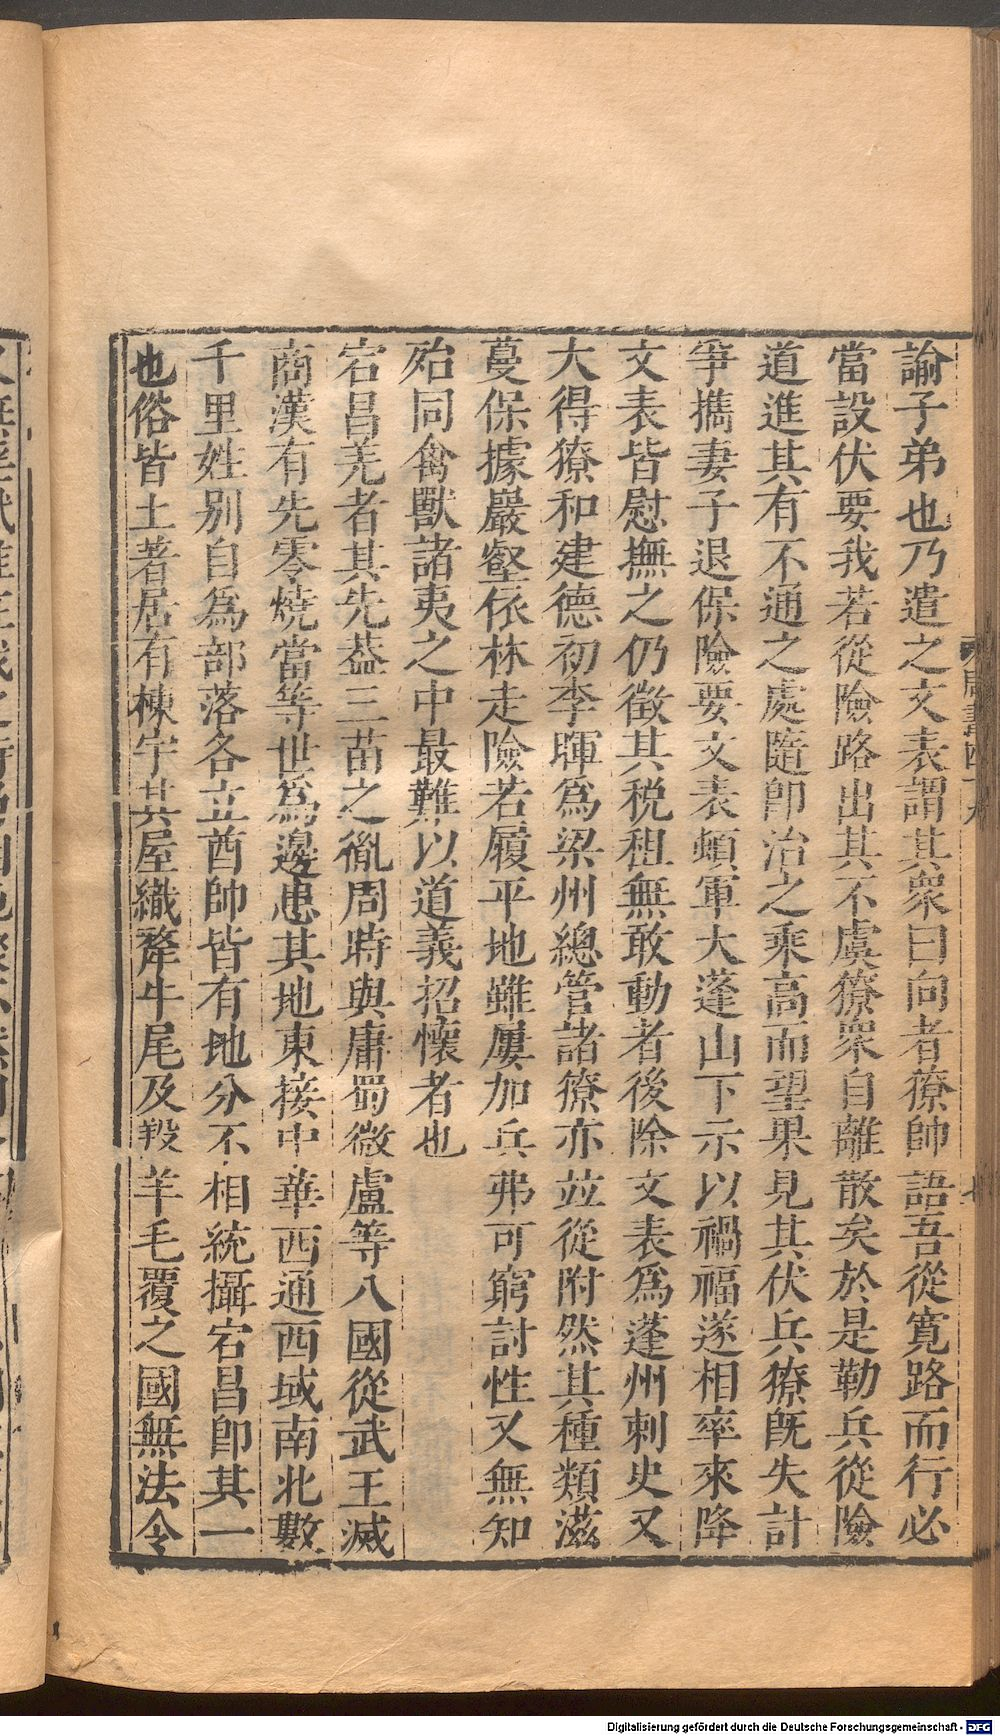 諭子弟也乃遣之文表謂其衆曰向者獠帥語吾從寬路而行必
當設伏要我若從險路出其不虞獠衆自離散矣於是勒兵從險
道進其有不通之處隨卽治之乘高而望果見其伏兵獠旣失計
爭攜妻子退保險要文表頓軍大蓬山下示以禍福遂相率來降
文表皆慰撫之仍徵其税租無敢動者後除文表爲蓬州刺史又
大得獠和建德初李暉爲梁州總管諸獠亦竝從附然其種類滋
蔓保據巖壑依林走險若履平地雖屢加兵弗可窮討性又無知
殆同禽獸諸夷之中最難以道義招懷者也
宕昌羌者其先葢三苗之胤周時與庸蜀微盧等八國從武王滅
商漢有先零燒當等世爲邊患其地東接中華西通西域南北數
千里姓别自爲部落各立酋帥皆有地分不相統攝宕昌卽其一
也俗皆土著居有棟宇其屋織犛牛尾及羖羊毛覆之國無法令
Digitalisierung gefördert durch die Deutsche Forschungsgemeinschaft - DFG